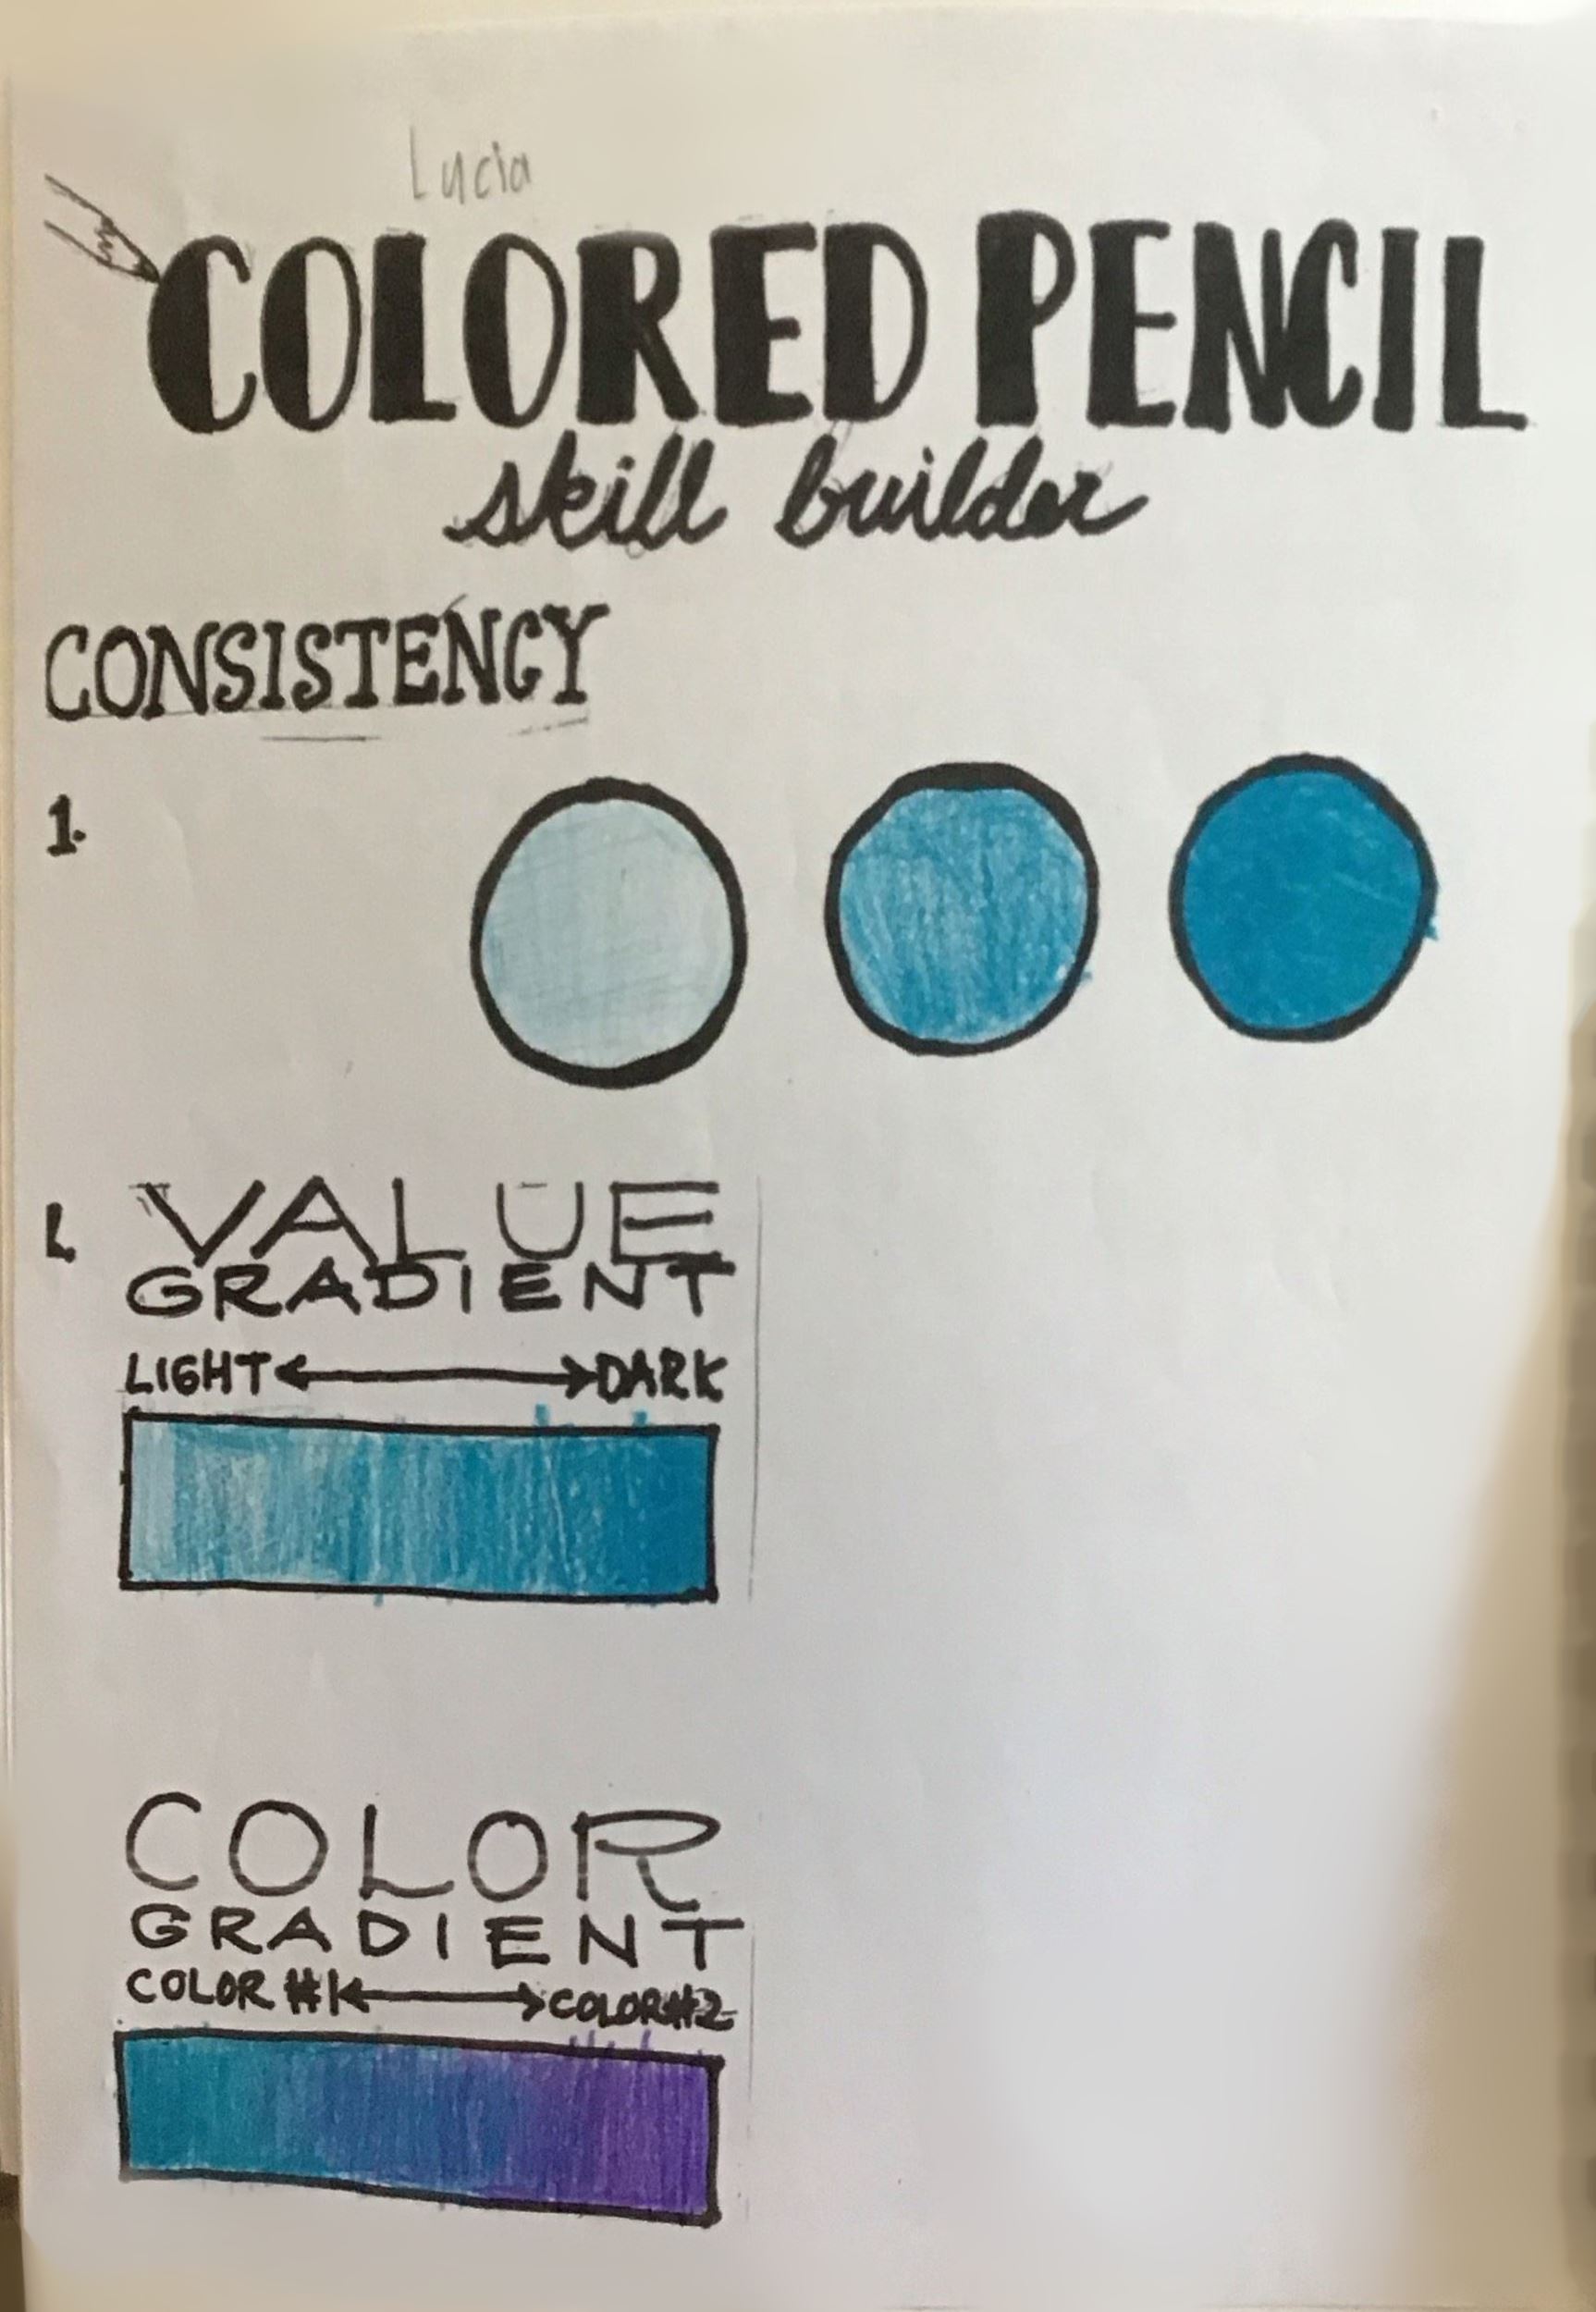 Lucia
COLORED PENCIL
skill builder
CONSISTENCY
1.
1. VALUE
GRADIENT
LIGHT DARK
COLOR
GRADIENT
COLOR #1 COLOR#2